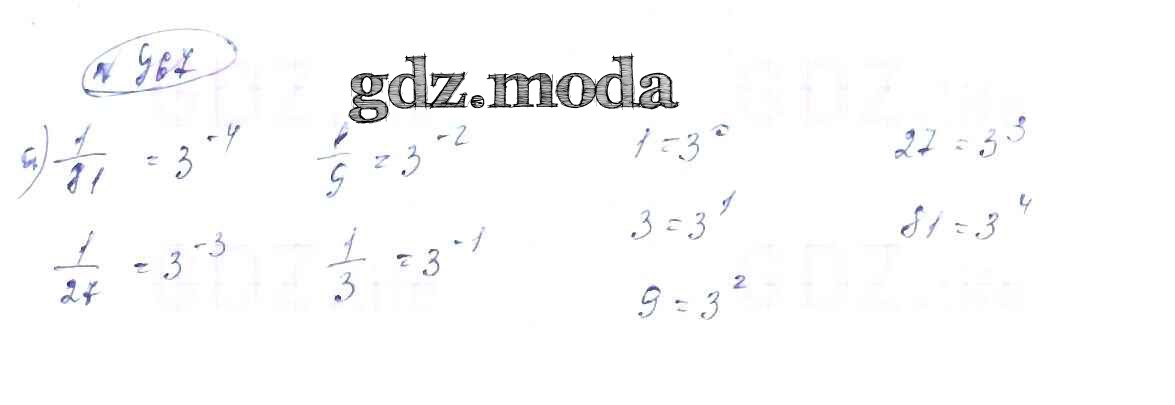 № 967
gdz.moda
а) 1/81 = 3^-4 1/9 = 3^-2 1 = 3^0 27 = 3^3
3 = 3^1 81 = 3^4
1/27 = 3^-3 1/3 = 3^-1
9 = 3^2